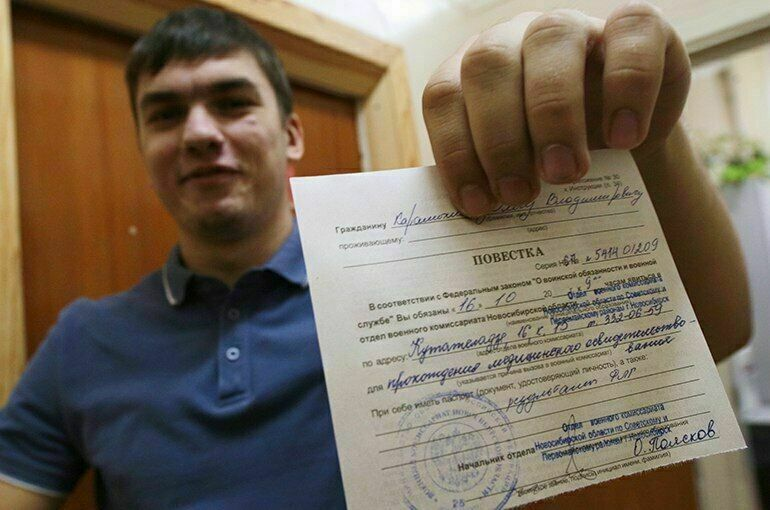 Приложение № 30
к Инструкции (п. 34)
Гражданину Владимировичу
(фамилия, имя, отчество)
проживающему:
(адрес)
ПОВЕСТКА
Серия НБ № 5414 01209
В соответствии с Федеральным законом "О воинской обязанности и военной
службе" Вы обязаны "16" 10 20 к "9" часам явиться в
отдел военного комиссариата Новосибирской области
Отдел военного комиссариата
Новосибирской области по Советскому и
Первомайскому районам г. Новосибирск
по адресу: Кутателадзе 16 к. 15 т. 332-06-59
(адрес отдела военного комиссариата)
для прохождения медицинского освидетельствования
(указывается причина вызова в военный комиссариат)
При себе иметь паспорт (документ, удостоверяющий личность), а также:
результаты ФЛГ
Отдел военного комиссариата
Новосибирской области по Советскому и
Первомайскому районам г. Новосибирск
Начальник отдела
О. Поляков
(воинское звание, подпись, инициал имени, фамилия)